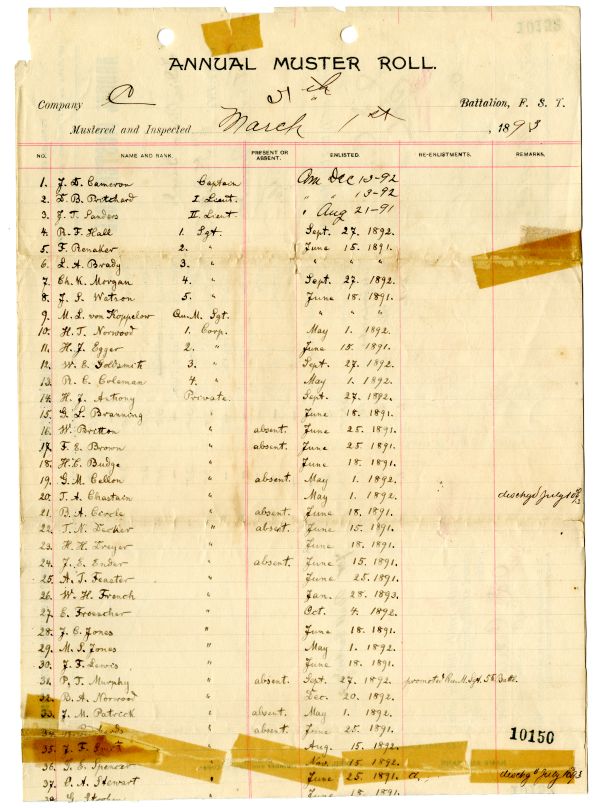 10122
ANNUAL MUSTER ROLL.
Company C 5th Battalion, F. S. T.
Mustered and Inspected March 1st, 1893
NO. NAME AND RANK. PRESENT OR ABSENT. ENLISTED. RE-ENLISTMENTS. REMARKS.
1. J. D. Cameron Captain Com Dec 13-92
2. D. B. Pritchard I. Lieut. " " 13-92
3. J. T. Sanders II. Lieut. " Aug 21-91
4. R. F. Hall 1. Sgt. Sept. 27. 1892.
5. F. Renaker 2. " June 15. 1891.
6. L. A. Brady 3. " " " "
7. Ch. K. Morgan 4. " Sept. 27. 1892.
8. J. S. Watson 5. " June 18. 1891.
9. M. L. von Koppelow Qu. M. Sgt. " " "
10. H. T. Norwood 1. Corp. May 1. 1892.
11. H. J. Egger 2. " June 15. 1891.
12. W. E. Goldsmith 3. " Sept. 27. 1892.
13. R. C. Coleman 4. " May 1. 1892.
14. H. J. Anthony Private. Sept. 27. 1892.
15. G. L. Branning " June 18. 1891.
16. W. Britton " absent. June 25. 1891.
17. F. E. Brown " absent. June 25. 1891.
18. H. C. Budge " June 18. 1891.
19. G. M. Cellon " absent. May 1. 1892.
20. T. A. Chastain " May 1. 1892. deschgd July 10th
21. B. A. " absent. June 18. 1891.
22. T. N. Decker " absent. June 15. 1891.
23. H. H. Dreyer " June 18. 1891.
24. J. E. Ender " absent. June 15. 1891.
25. A. J. Feaster " June 25. 1891.
26. W. H. French " Jan. 28. 1893.
27. E. Froescher " Oct. 4. 1892.
28. J. C. Jones " June 18. 1891.
29. M. S. Jones " May 1. 1892.
30. J. F. Lewis " June 18. 1891.
31. P. T. Murphy " absent. Sept. 27. 1892. promoted Qu. M. Sgt. 5th Batt.
32. B. A. Norwood " Dec. 20. 1892.
33. J. M. Patrick " absent. May 1. 1892.
34. " absent. June 25. 1891.
10150
35. J. F. " Aug. 15. 1892.
36. T. E. Spencer " absent. Nov. 15. 1892.
37. C. A. Stewart " June 25. 1891. deschgd July 1893
38. G. " June 18. 1891.